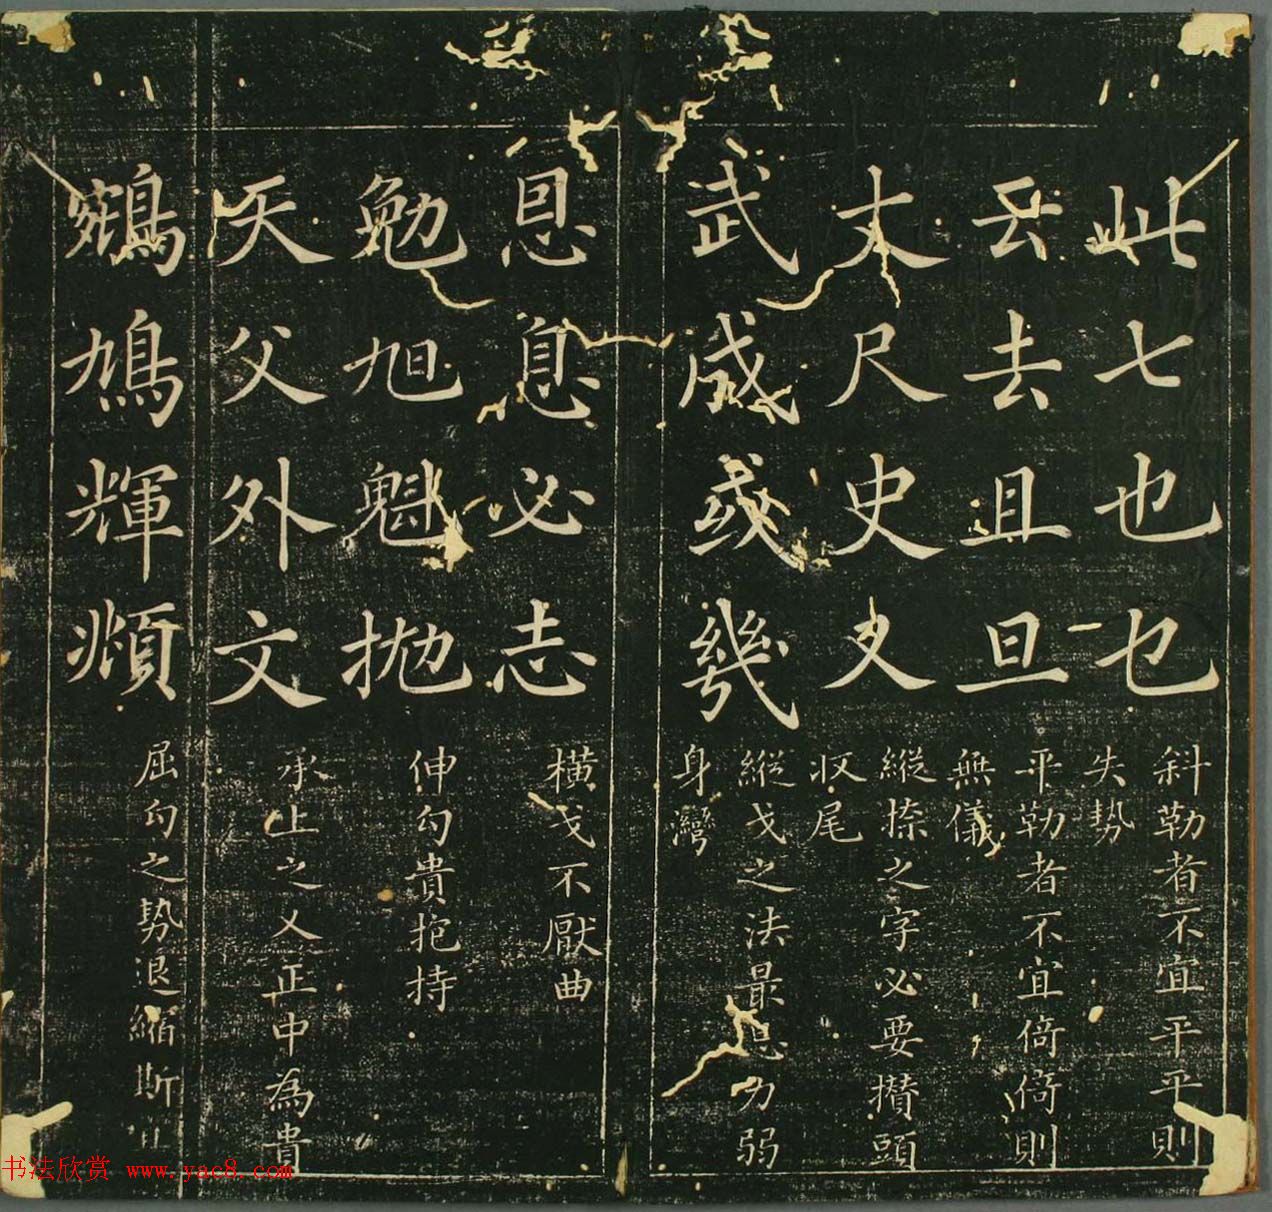 此七也乜
斜勒者不宜平平則
失勢
云去且旦
平勒者不宜倚倚則
無儀
丈尺史又
縱捺之字必要攢頭
収尾
武成或幾
縱戈之法最忌力弱
身灣
恩息必志
橫戈不厭曲
勉旭魁拋
伸勾貴抱持
天父外文
承上之乂正中為貴
鵷鳩輝頫
屈勾之勢退縮斯宜
书法欣赏 www.yac8.com